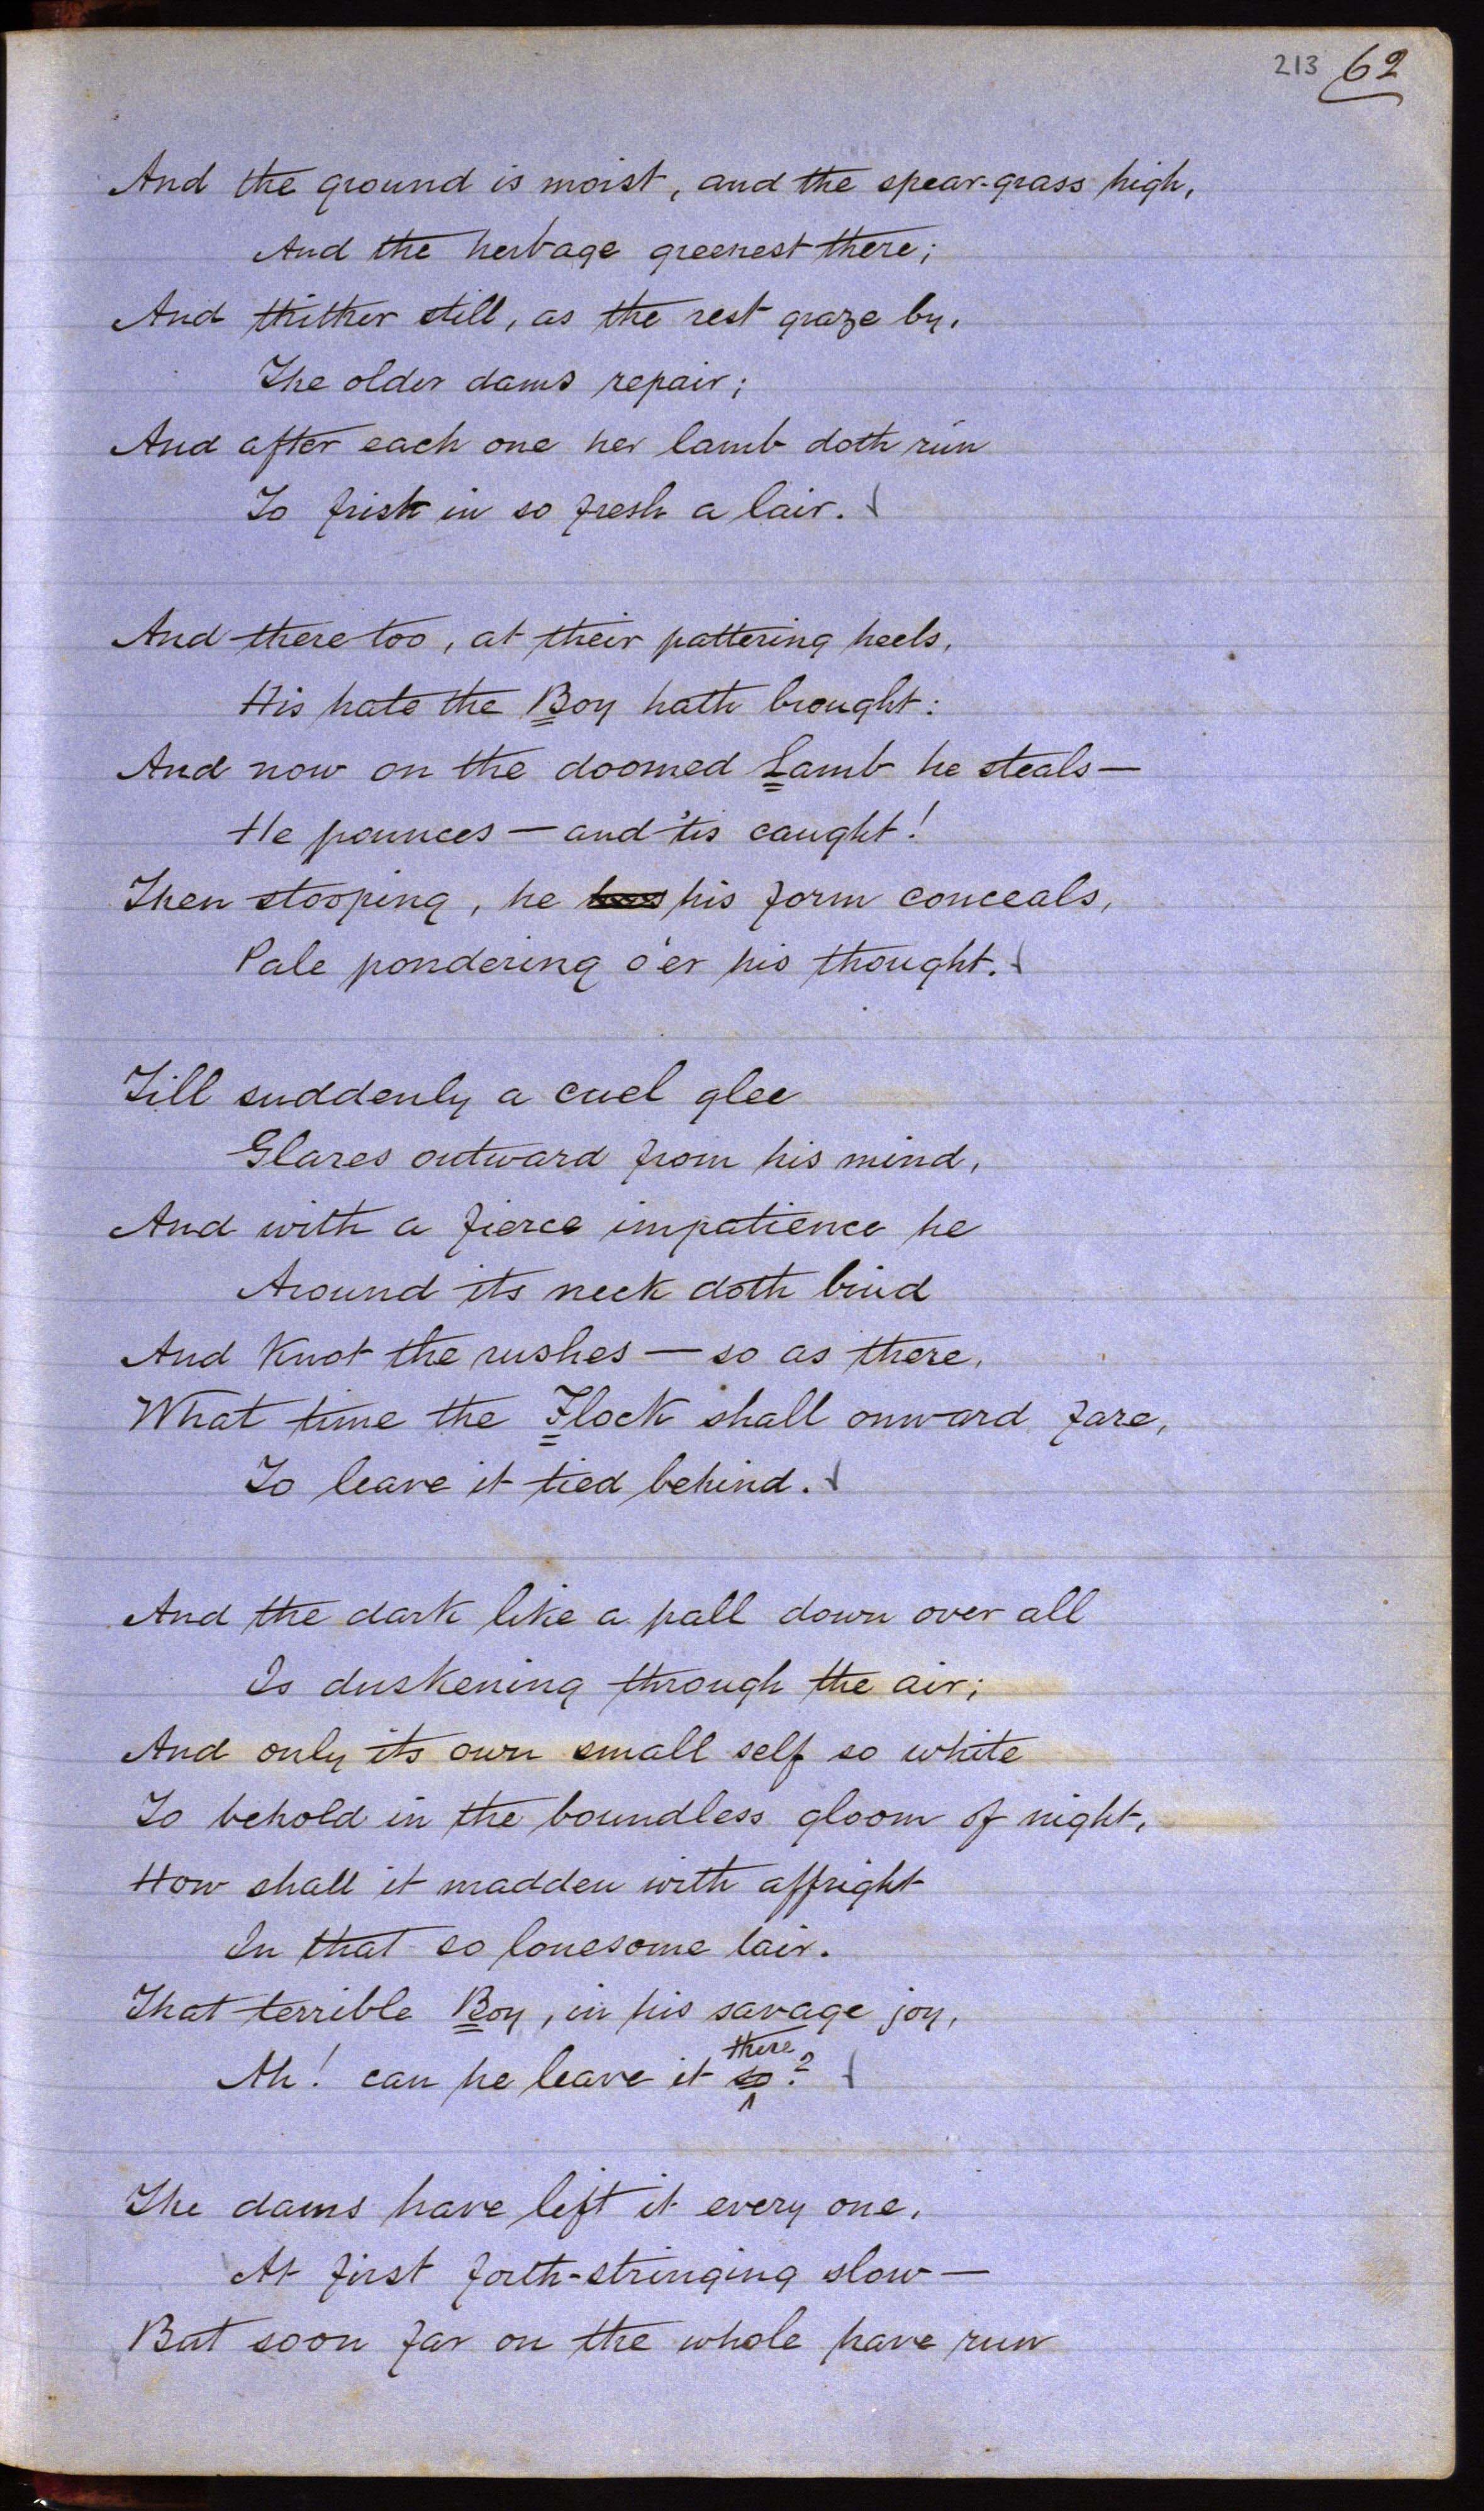 213 62
And the ground is moist, and the spear-grass high,
And the herbage greenest there;
And thither still, as the rest graze by,
The older dams repair;
And after each one her lamb doth run
To frisk in so fresh a lair.
And there too, at their pattering heels,
His hate the Boy hath brought:
And now on the doomed Lamb he steals—
He pounces—and 'tis caught!
Then stooping, he his form conceals,
Pale pondering o'er his thought.
Till suddenly a cruel glee
Glares outward from his mind,
And with a fierce impatience he
Around its neck doth bind
And knot the rushes—so as there,
What time the Flock shall onward fare,
To leave it tied behind.
And the dark like a pall down over all
Is duskening through the air;
And only its own small self so white
To behold in the boundless gloom of night,
How shall it madden with affright
In that so lonesome lair.
That terrible Boy, in his savage joy,
there
Ah! can he leave it so?
The dams have left it every one,
At first forth-stringing slow—
But soon far on the whole have run